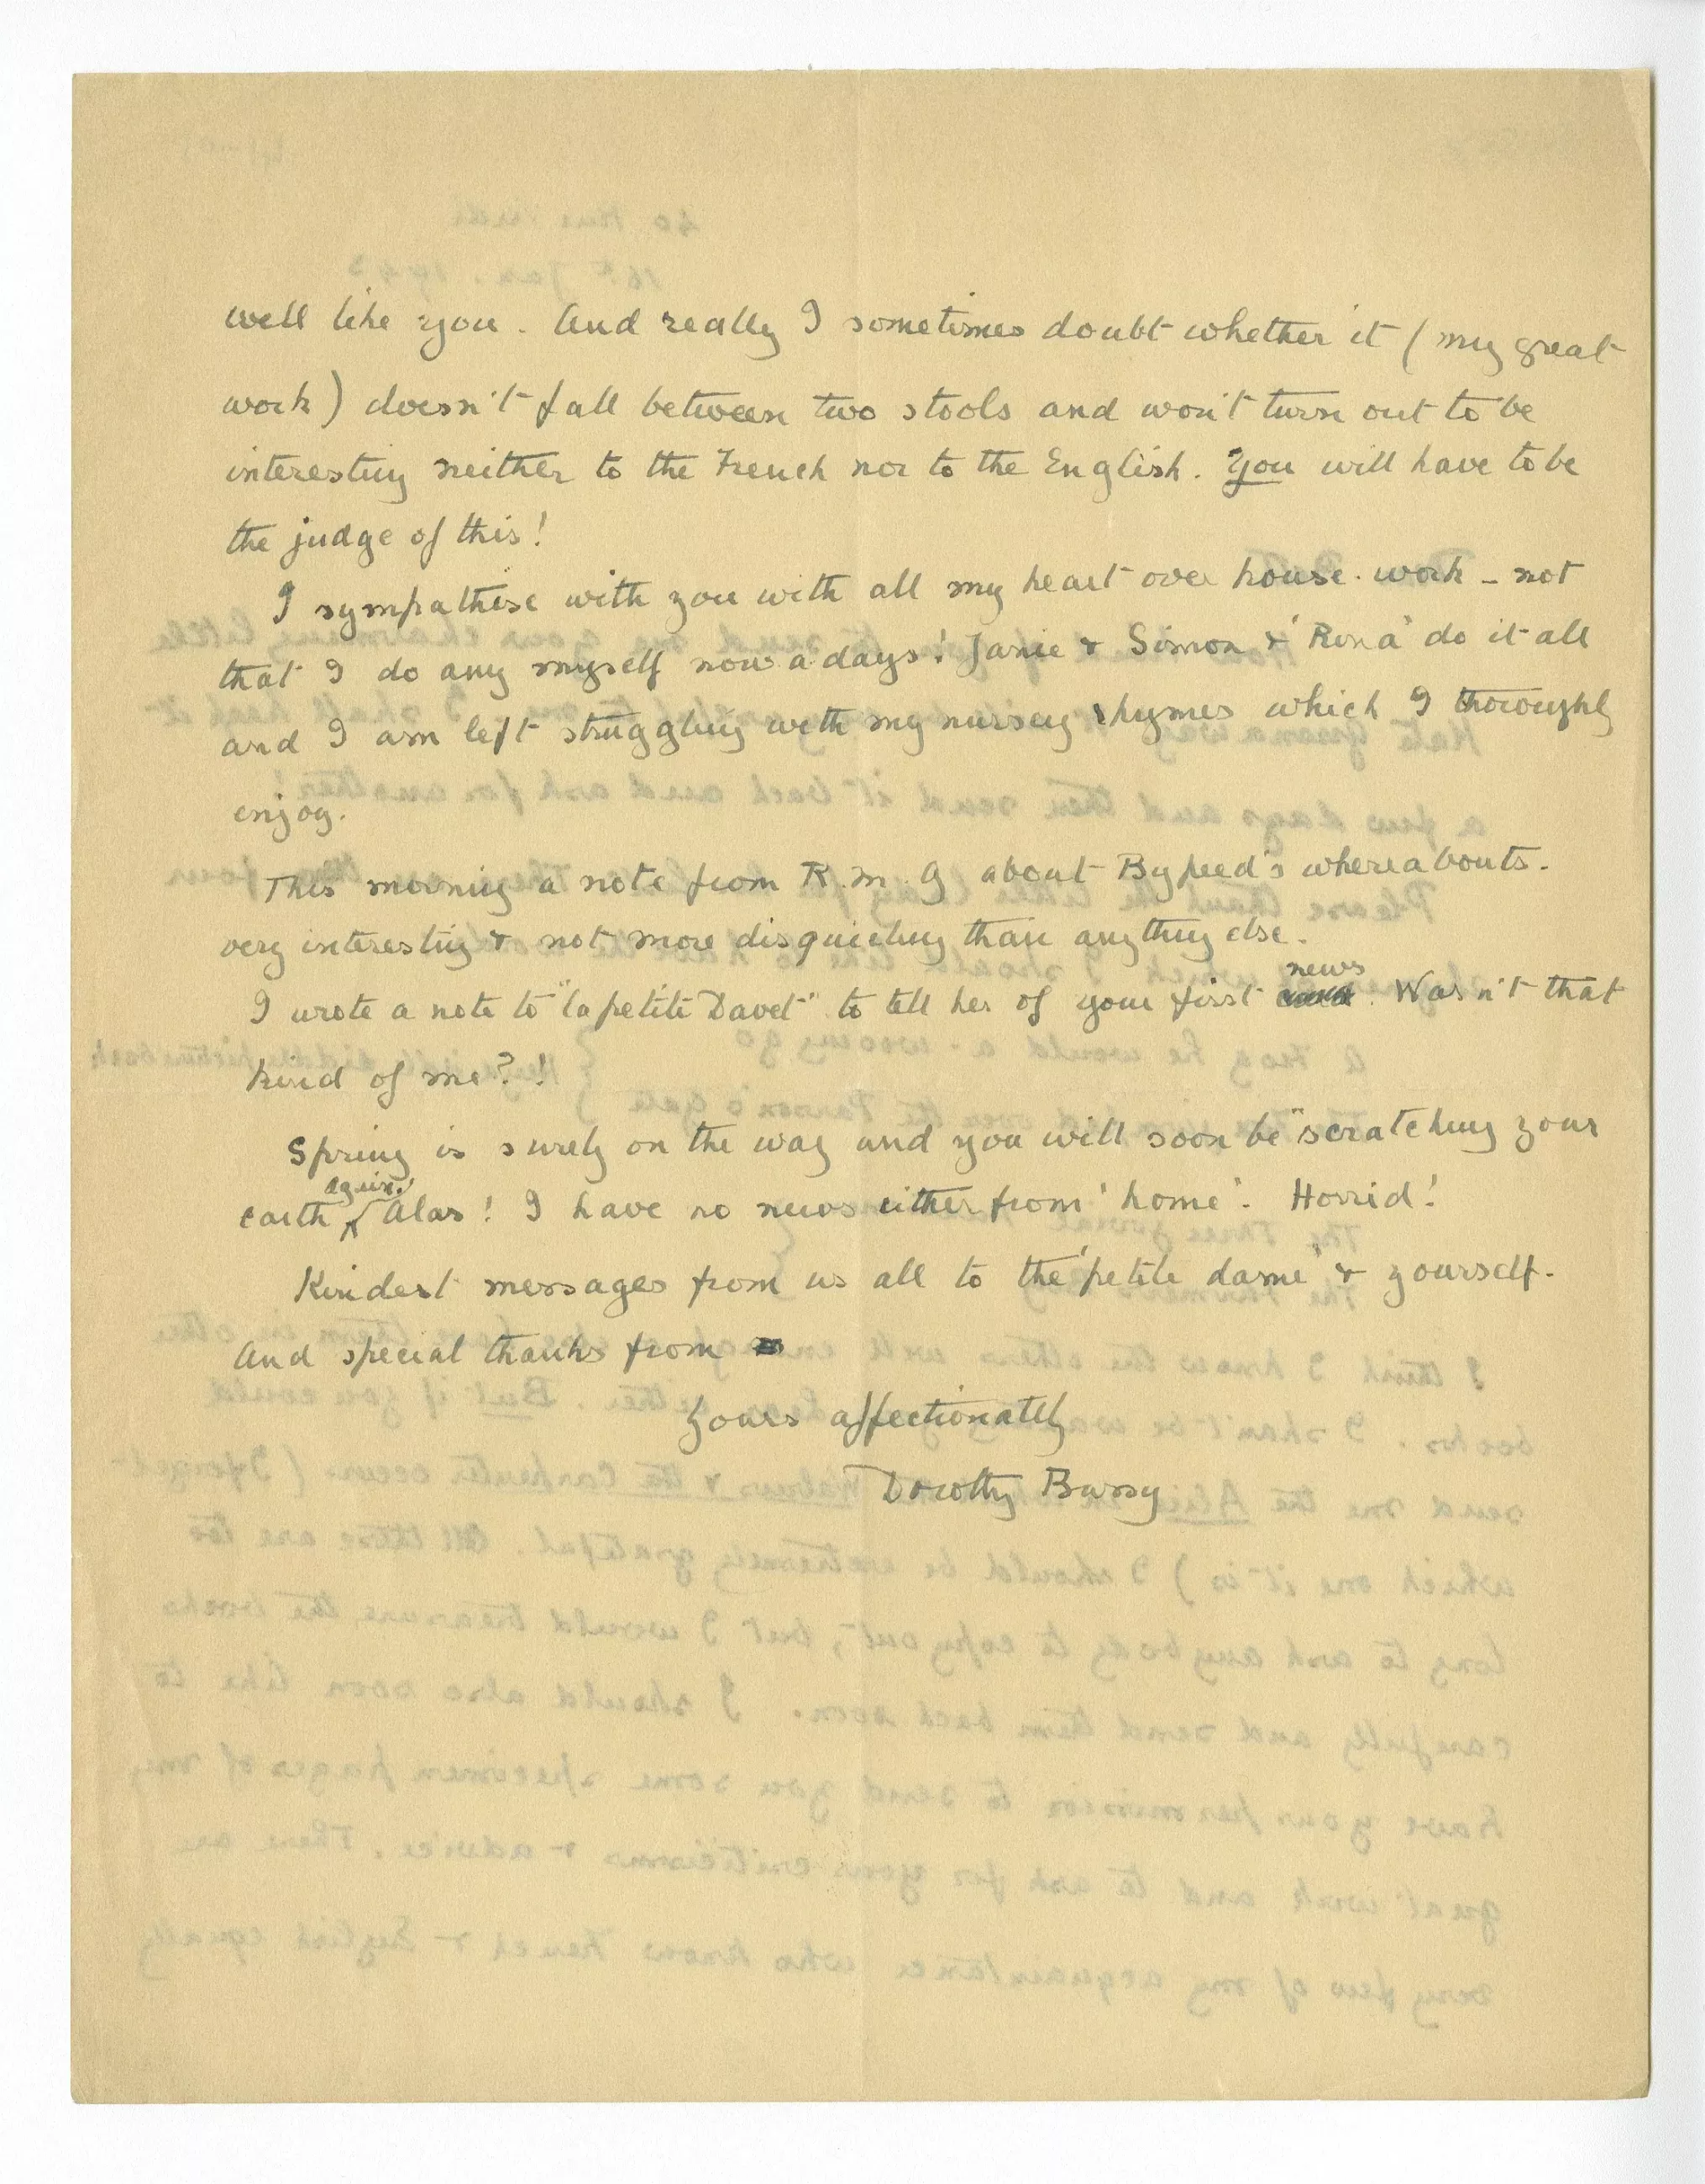 well like you. And really I sometimes doubt whether it (my great
work) doesn't fall between two stools and won't turn out to be
interesting neither to the French nor to the English. You will have to be
the judge of this!
I sympathise with you with all my heart over house-work – not
that I do any myself nowadays! Janie & Simon & 'Rona' do it all
and I am left struggling with my nursery rhymes which I thoroughly
enjoy.
This morning a note from R.M.G about Bypeed's whereabouts.
very interesting & not more disquieting than anything else.
I wrote a note to "la petite Davet" to tell her of your first news. Wasn't that
kind of me?!
Spring is surely on the way and you will soon be "scratching your
earth again." Alas! I have no news either from 'home'. Horrid!
Kindest messages from us all to the 'petite dame' & yourself.
And special thanks from
Yours affectionately
Dorothy Bussy